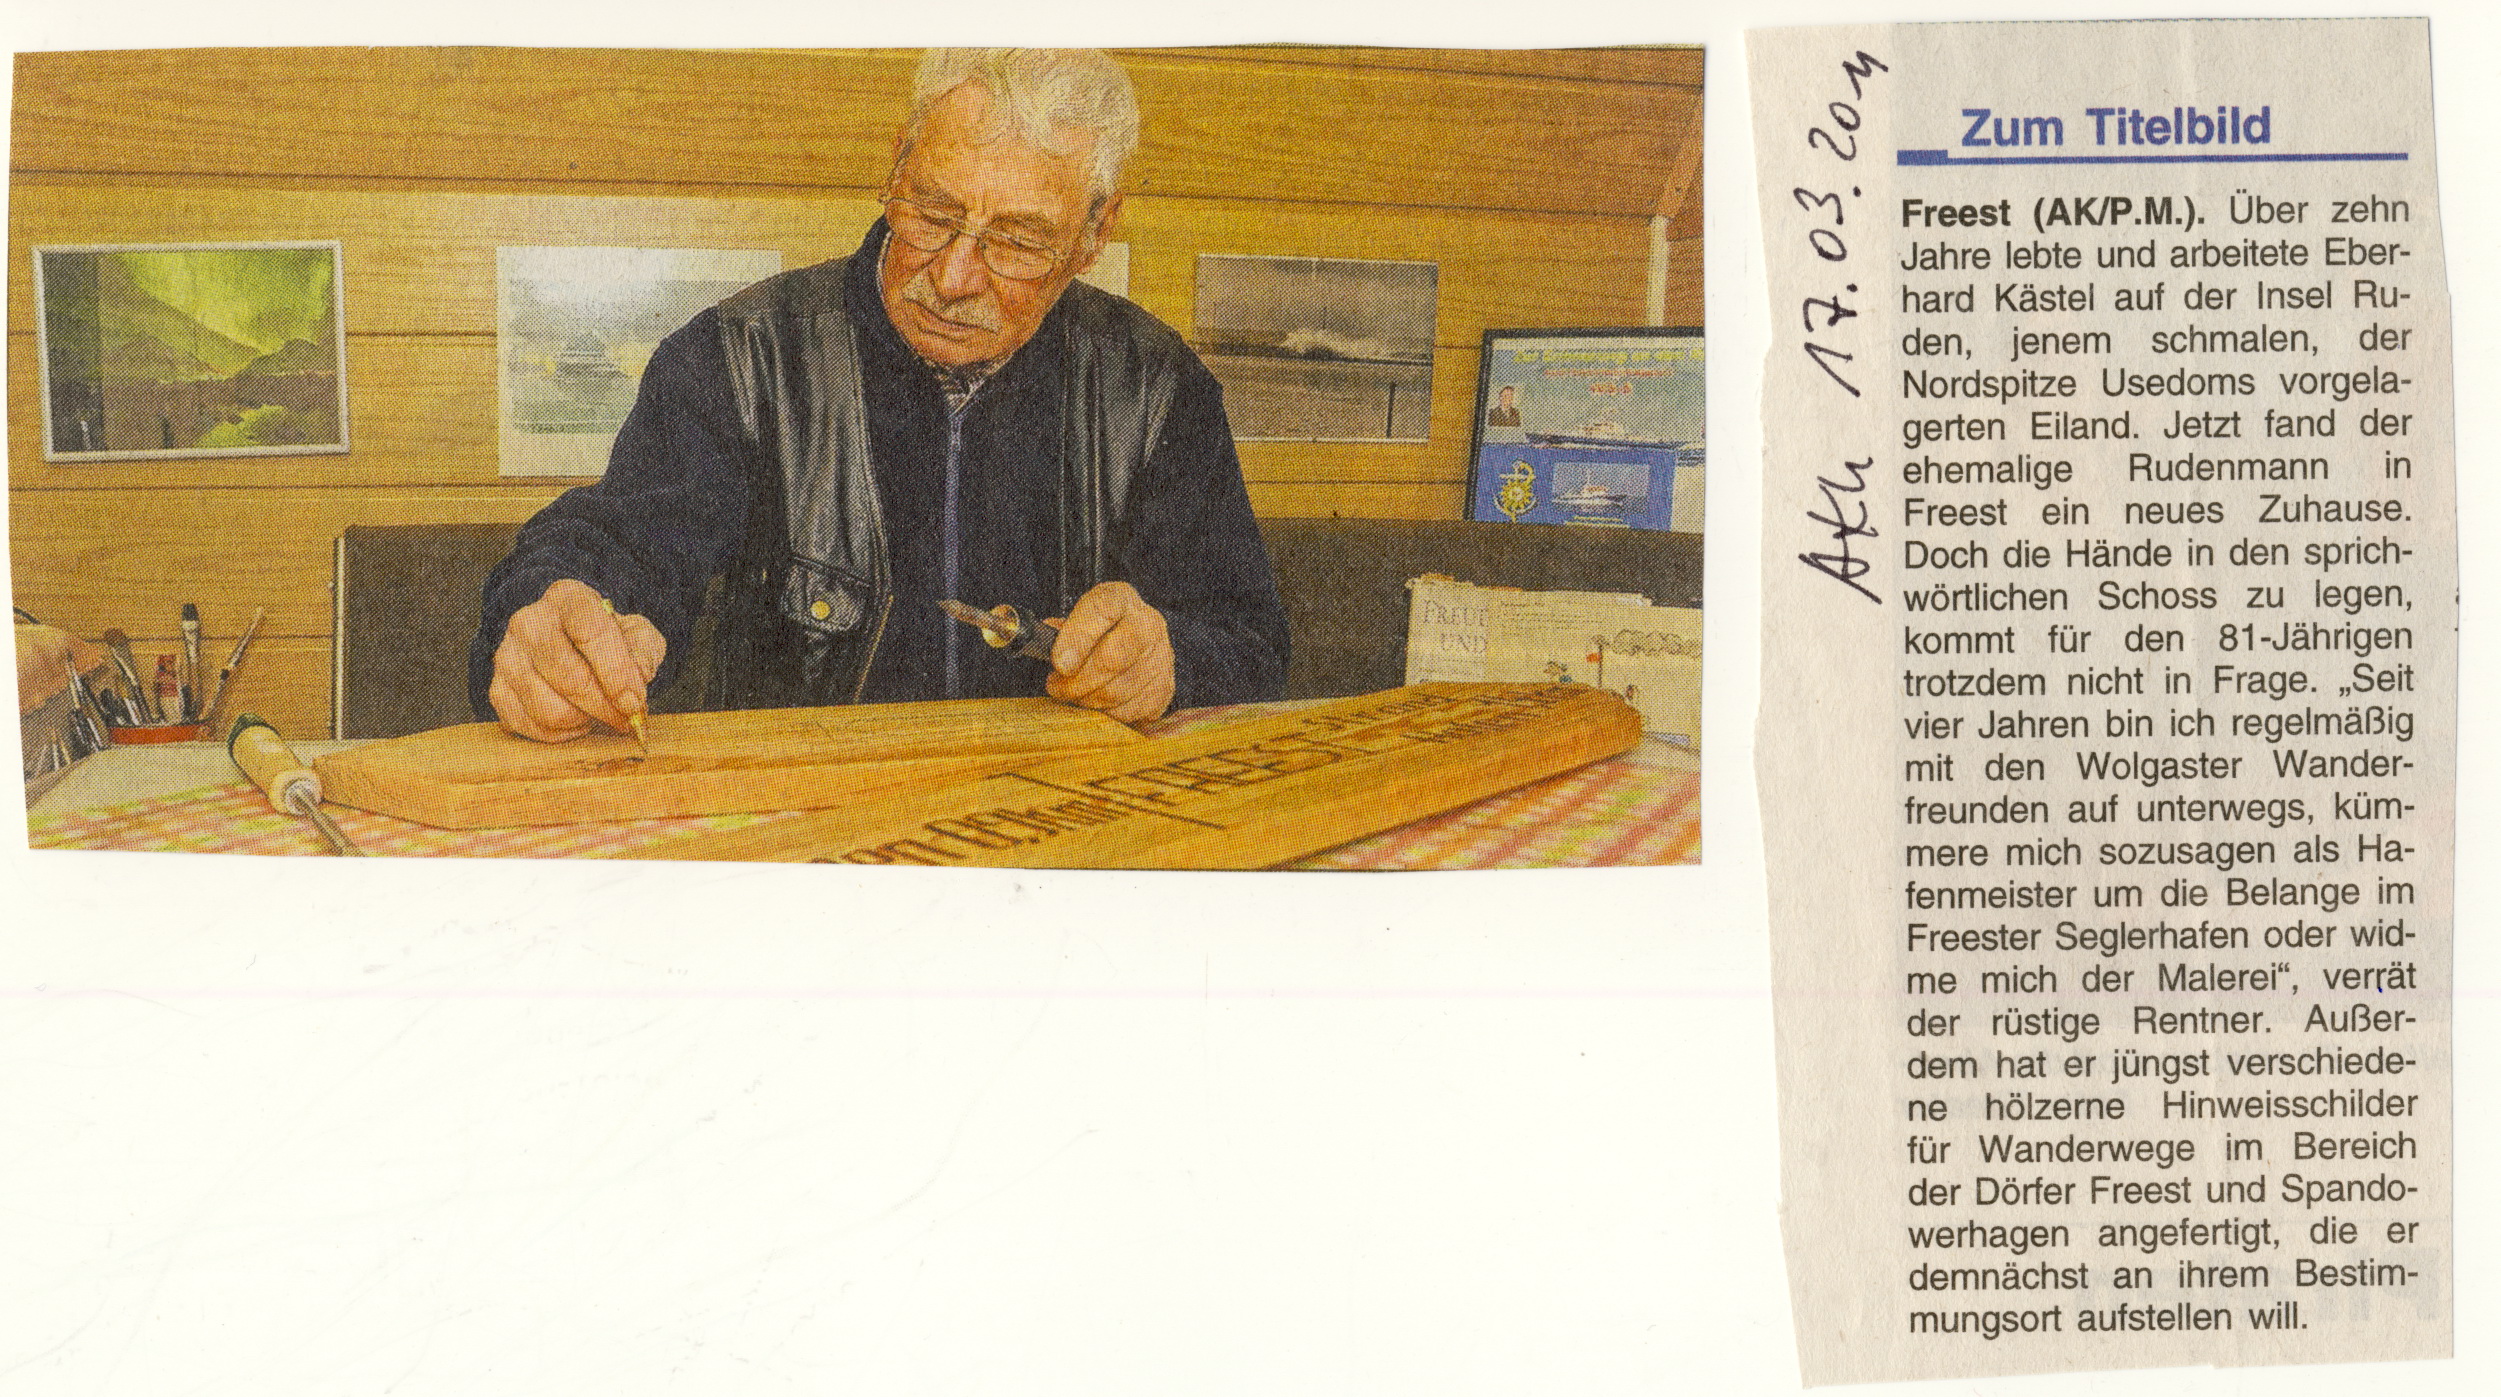 FREUD
UND
FREEST
Zum Titelbild
Freest (AK/P.M.). Über zehn
Jahre lebte und arbeitete Eber-
hard Kästel auf der Insel Ru-
den, jenem schmalen, der
Nordspitze Usedoms vorgela-
gerten Eiland. Jetzt fand der
ehemalige Rudenmann in
Freest ein neues Zuhause.
Doch die Hände in den sprich-
wörtlichen Schoss zu legen,
kommt für den 81-Jährigen
trotzdem nicht in Frage. „Seit
vier Jahren bin ich regelmäßig
mit den Wolgaster Wander-
freunden auf unterwegs, küm-
mere mich sozusagen als Ha-
fenmeister um die Belange im
Freester Seglerhafen oder wid-
me mich der Malerei“, verrät
der rüstige Rentner. Außer-
dem hat er jüngst verschiede-
ne hölzerne Hinweisschilder
für Wanderwege im Bereich
der Dörfer Freest und Spando-
werhagen angefertigt, die er
demnächst an ihrem Bestim-
mungsort aufstellen will.
17.03.2014